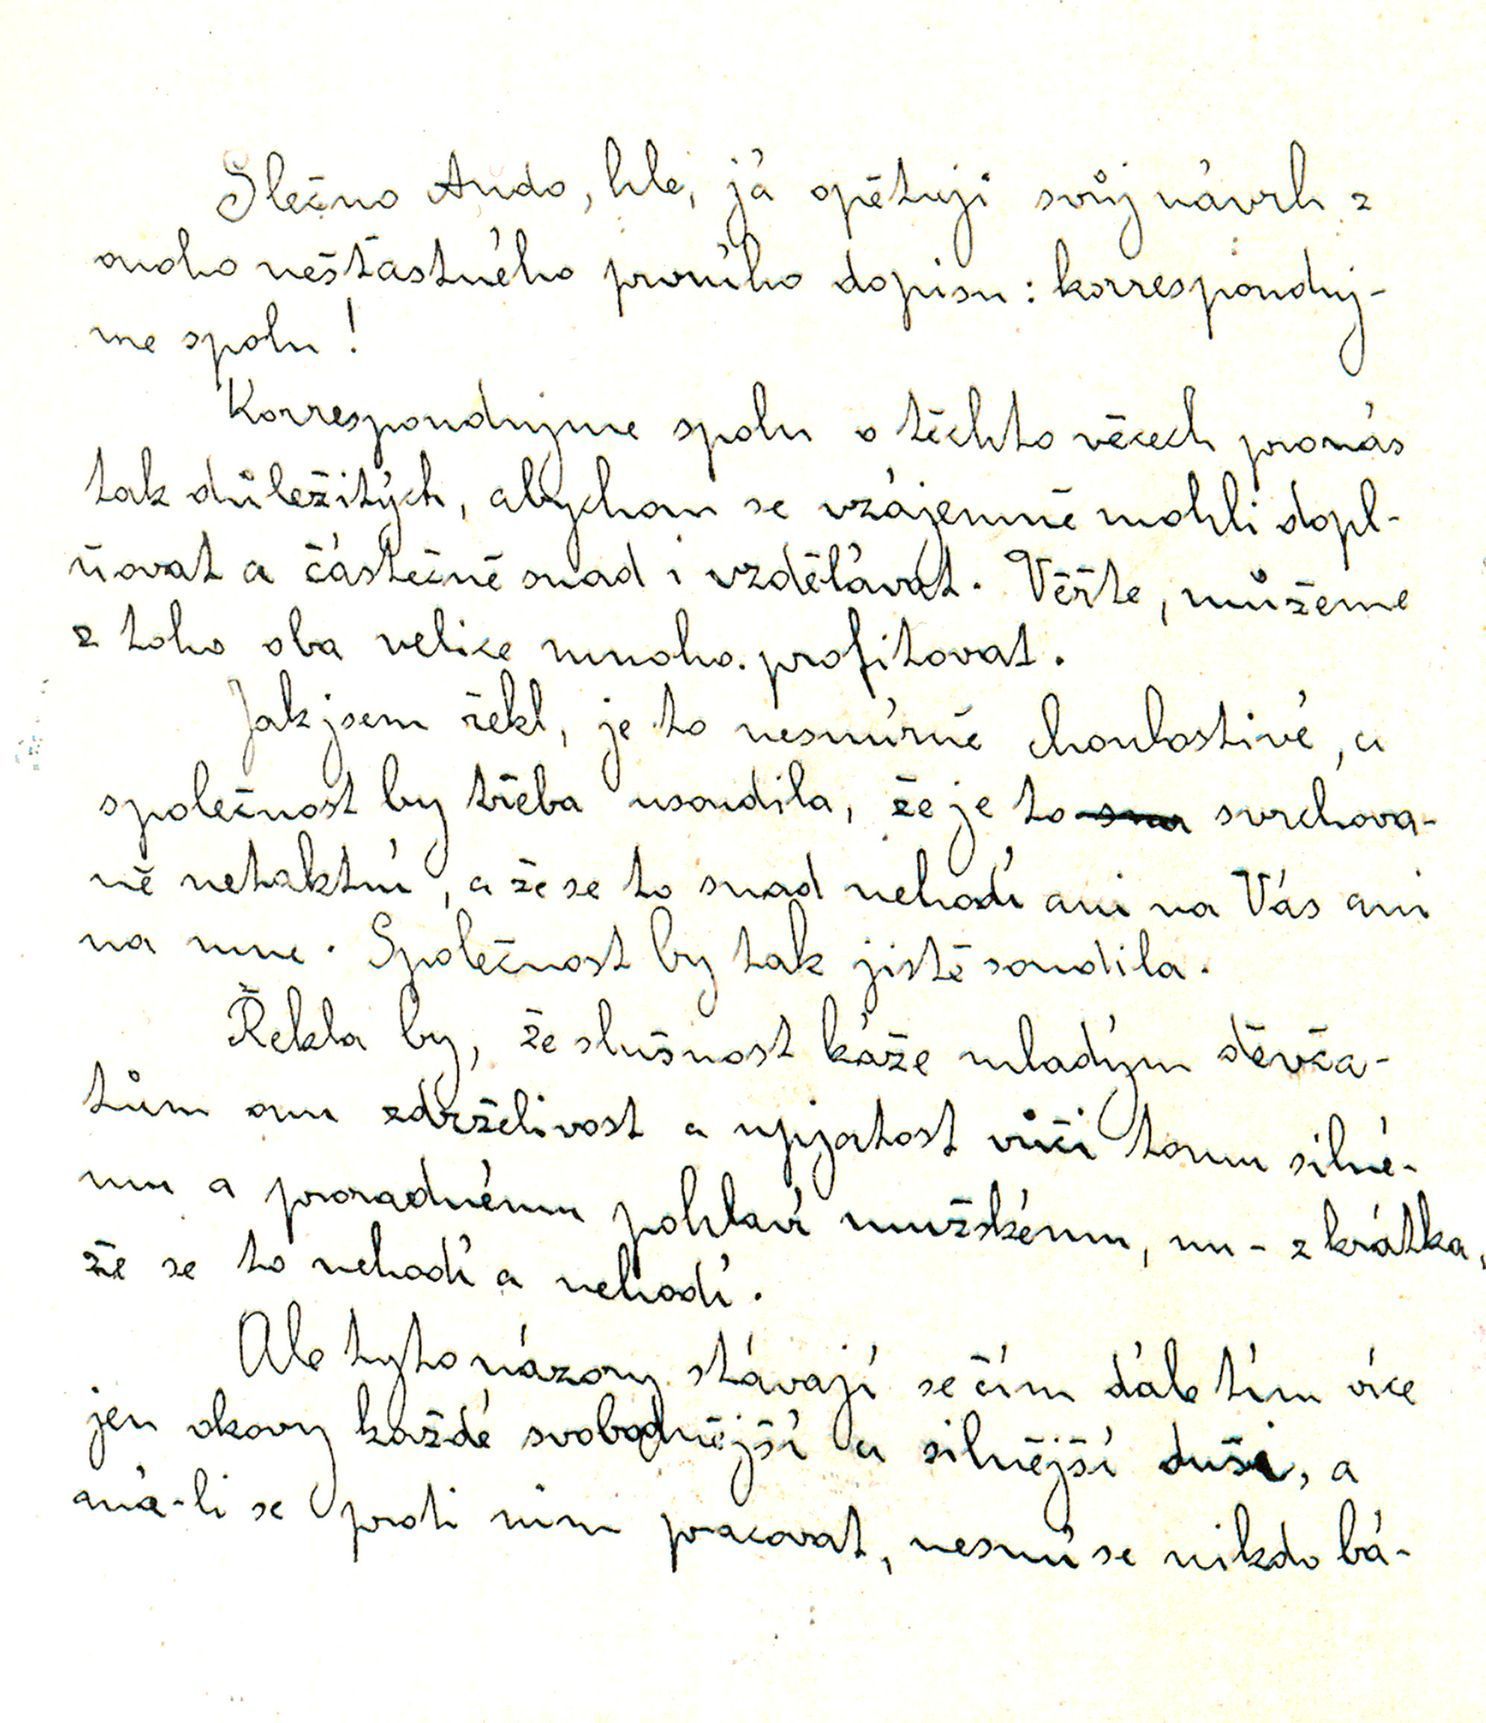 Slečno Ando, hle, já opětuji svůj návrh z
onoho nešťastného prvního dopisu: korresponduj-
me spolu!
Korrespondujme spolu o těchto věcech pro nás
tak důležitých, abychom se vzájemně mohli dopl-
ňovat a částečně snad i vzdělávat. Věřte, můžeme
z toho oba velice mnoho profitovat.
Jak jsem řekl, je to nesmírně choulostivé, a
společnost by třeba usoudila, že je to svrchova-
ně netaktní, a že se to snad nehodí ani na Vás ani
na mne. Společnost by tak jistě soudila.
Řekla by, že slušnost káže mladým děvča-
tům onu zdrželivost a upjatost vůči tomu silné-
mu a proradnému pohlaví mužskému, nu - z krátka,
že se to nehodí a nehodí.
Ale tyto názory stávají se čím dále tím více
jen okovy každé svobodnější a silnější duši, a
má-li se proti nim pracovat, nesmí se nikdo bá-